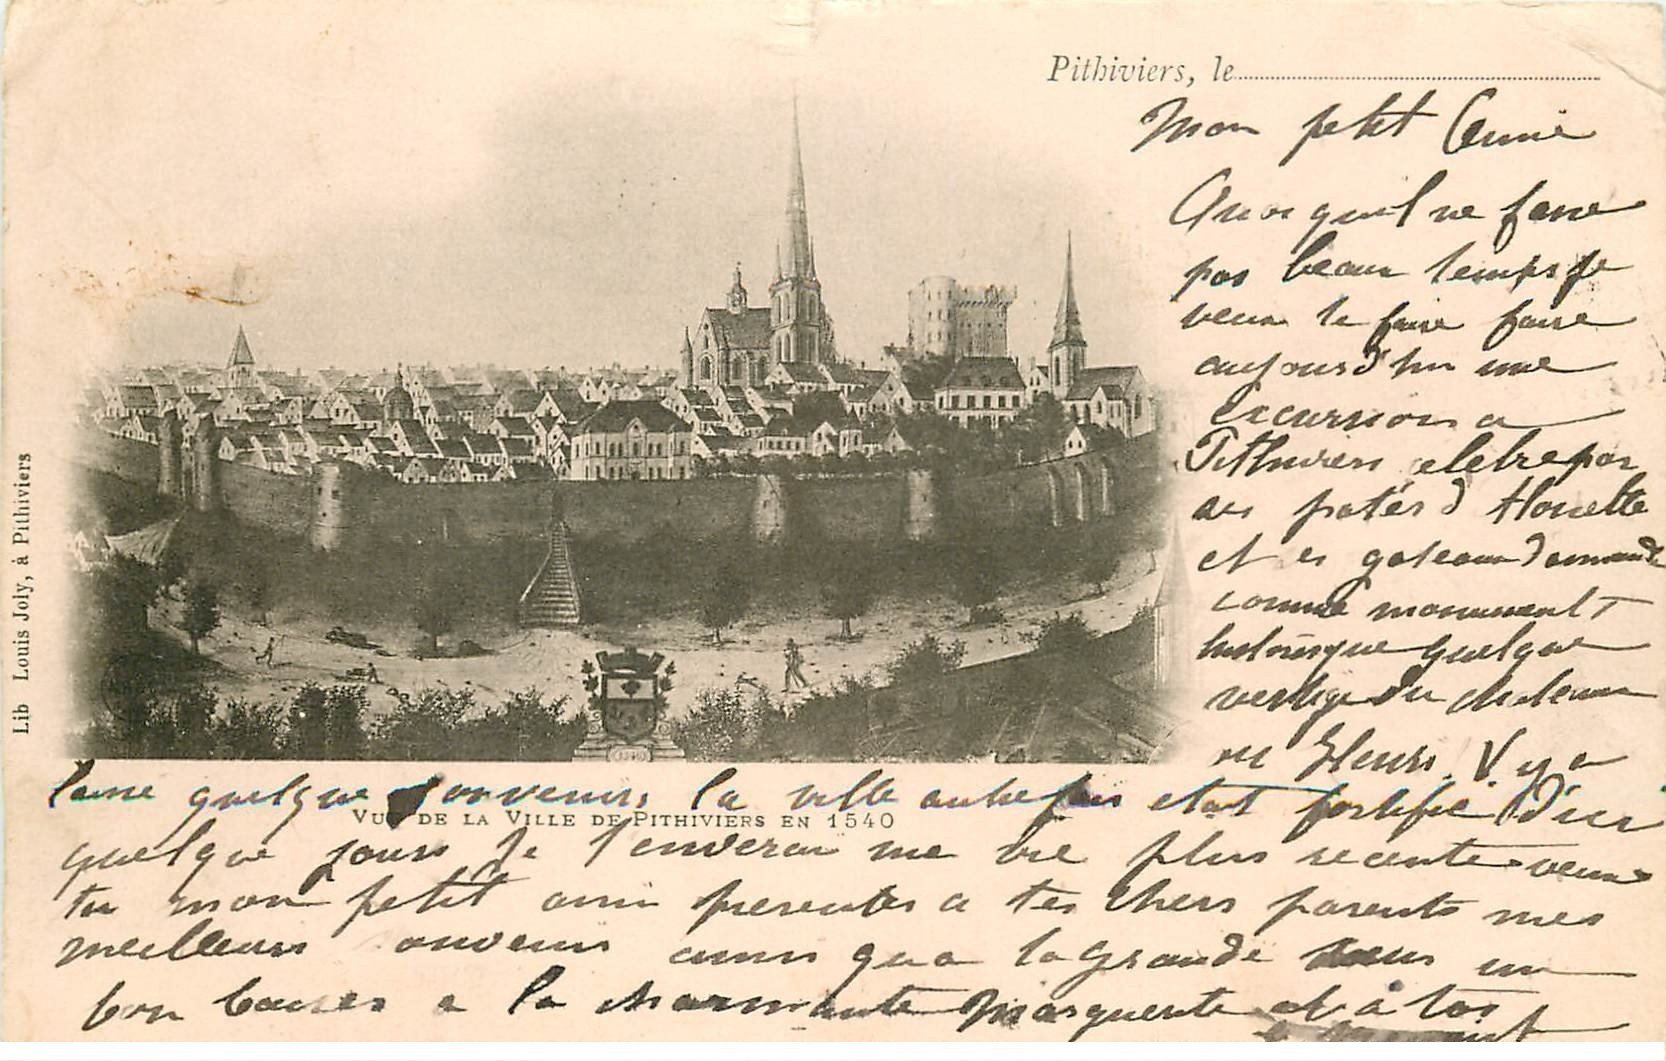 Pithiviers, le
Mon petit Ami
Quoi quil ne fasse
pas beau temps je
veux te faire faire
aujourd'hui une
excursion a
Pithiviers celebre par
ses patés d Alouette
et ses gateaux d amande
comme monument
historique quelque
vestige du chateau
Il y a
quelque souvenirs la ville autrefois etait fortifié D'ici
quelque jours je t enverai une vue plus recente veux
tu mon petit ami presenter a tes chers parents mes
meilleurs souvenirs ainsi qu a la grande soeur un
bon baiser a la charmante Marguerite et à toi
VUE DE LA VILLE DE PITHIVIERS EN 1540
Lib Louis Joly, à Pithiviers